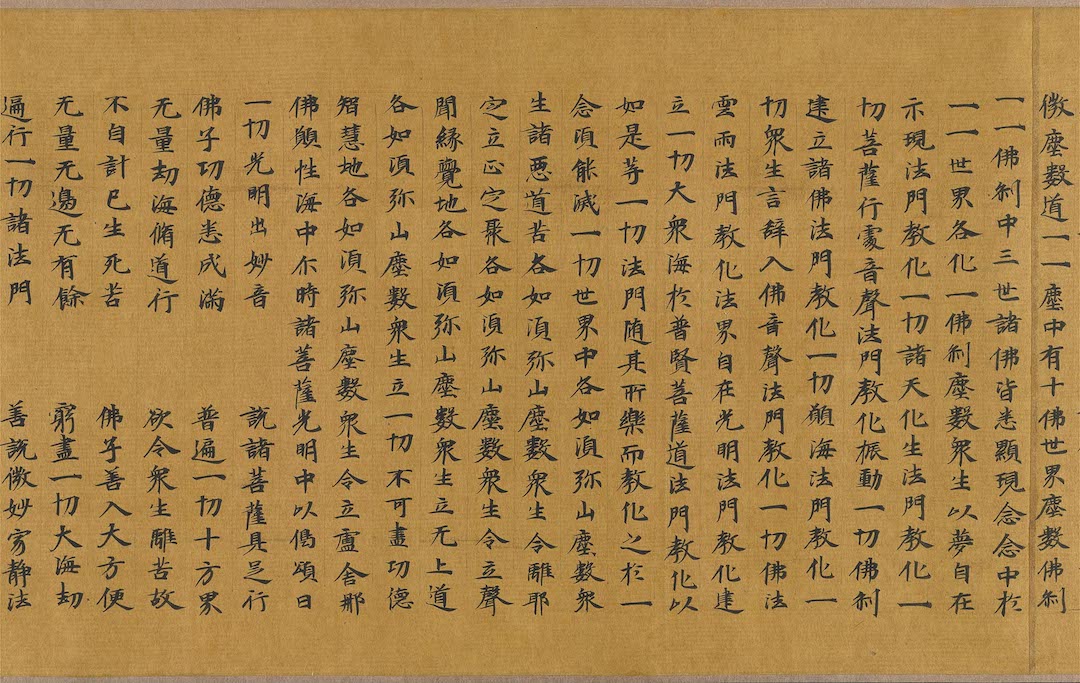 微塵數道一一塵中有十佛世界塵數佛刹
一一佛刹中三世諸佛皆悉顯現念念中於
一一世界各化一佛刹塵數衆生以夢自在
示現法門教化一切諸天化生法門教化一
切菩薩行處音聲法門教化振動一切佛刹
建立諸佛法門教化一切願海法門教化一
切衆生言辭入佛音聲法門教化一切佛法
雲雨法門教化法界自在光明法門教化建
立一切大衆海於普賢菩薩道法門教化以
如是等一切法門随其所樂而教化之於一
念湏能滅一切世界中各如湏弥山塵數衆
生諸惡道苦各如湏弥山塵數衆生令離耶
定立正定聚各如湏弥山塵數衆生令立聲
聞緣覺地各如湏弥山塵數衆生立无上道
各如湏弥山塵數衆生立一切不可盡功德
智慧地各如湏弥山塵數衆生令立盧舍那
佛願性海中尒時諸菩薩光明中以偈頌曰
一切光明出妙音 説諸菩薩具足行
佛子功德悉成滿 普遍一切十方界
无量劫海脩道行 欲令衆生離苦故
不自計已生死苦 佛子善入大方便
无量无邊无有餘 窮盡一切大海劫
遍行一切諸法門 善説微妙寂静法